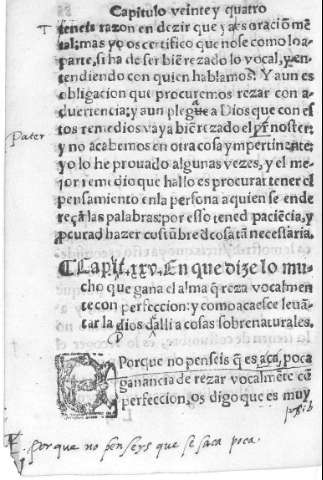 Capitulo veinte y quatro
teneis razon en dezir que ya es oracion mẽ
tal: mas yo os certifico que no se como lo a-
parte, si ha de ser biẽ rezado lo vocal, y en-
tendiendo con quien hablamos: Y aun es
obligacion que procuremos rezar con a-
duertencia; y aun plegue a Dios que con es
tos remedios vaya biẽ rezado el pr̃ noster:
Pater
y no acabemos en otra cosa ympertinẽte;
yo lo he prouado algunas vezes, y el me-
jor remedio que hallo es procurar tener el
pensamiento en la persona a quien se ende
reçã las palabras: por esso tened paciẽcia, y
pcurad hazer costũbre d cosa tã necessaria.
¶ Capit. xxv. En que dize lo mu-
cho que gana el alma q̃ reza vocalmen
te con perfeccion: y como acaesce leuã-
tar la dios d alli a cosas sobrenaturales.
Porque no penseis q̃ es aca, poca
ganancia de rezar vocalmẽte cõ
perfeccion, os digo que es muy
porque no penseys que se saca poca.